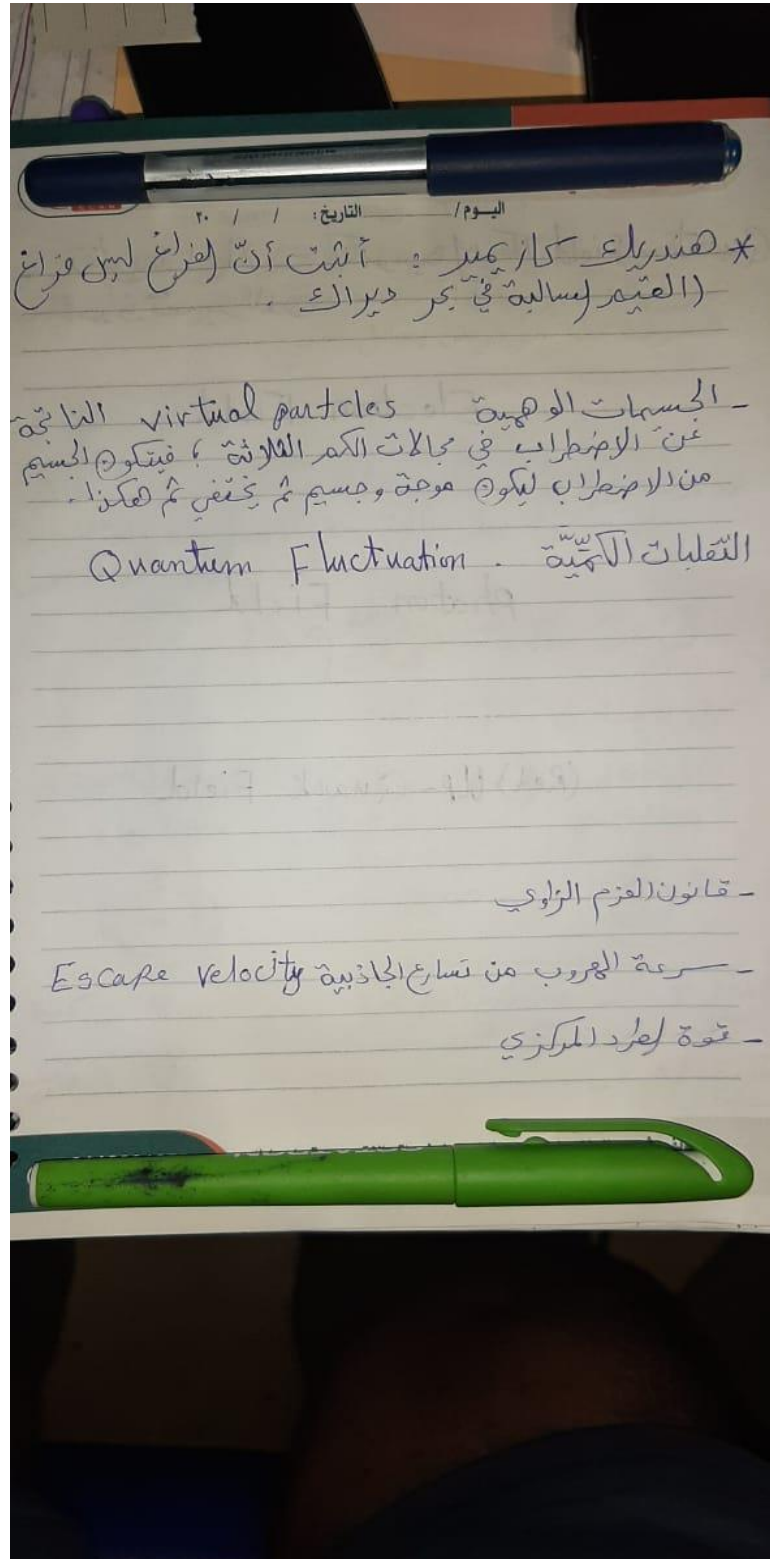 اليوم / التاريخ: / / ٢٠
* هندريك كازيمير : أثبت أنّ الفراغ ليس فراغ
(القيم السالبة في بحر ديراك .
- الجسيمات الوهمية virtual partcles الناتجة
عن الاضطراب في مجالات الكم الثلاثة ؛ فيتكون الجسيم
من الاضطراب ليكون موجة وجسيم ثم يختفي ثم هكذا .
التّقلبات الكمّيّة . Quantum Fluctuation
- قانون العزم الزاوي
- سرعة الهروب من تسارع الجاذبية Escape velocity
- قوة الطرد المركزي